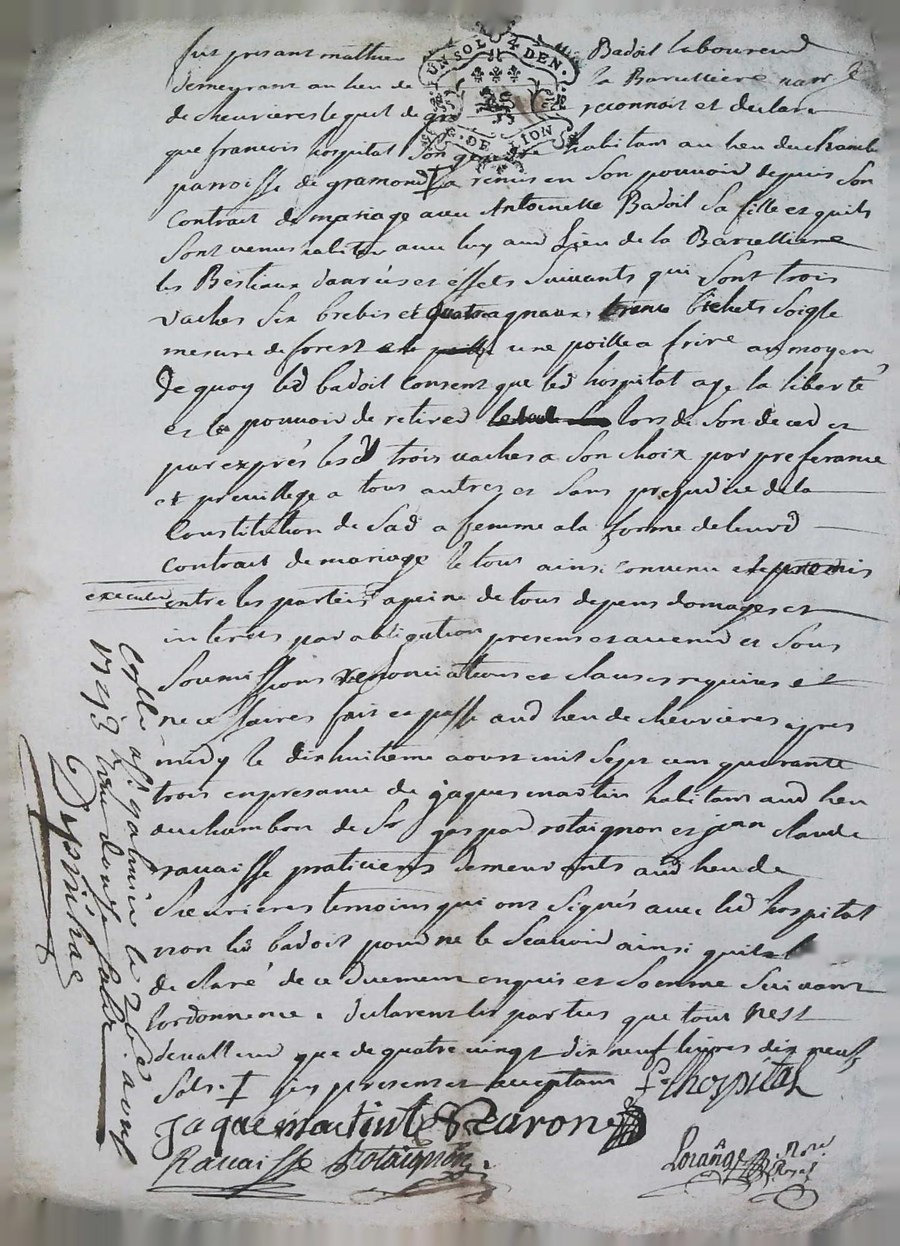 fut presant mathieu Badoit laboureur
demeurant au lieu de la Barcettiere
de chevrieres lequel de reconnoit et declare
que francois hospital son habitant au lieu du chambo
parroisse de gramond ╪ a remis en son pouvoir depuis son
Contrat de mariage avec Antoinette Badoit sa fille et quils
sont venus habiter avec luy aud Lieu de la Barcettiere
les Bestiaux danrées et effets suivants qui sont trois
vaches six brebis et quatre agneaux trente bichets soigle
mesure de forest une poille a frire au moyen
de quoy led badoit consent que led hospital aye la liberté
et le pouvoir de retirer lors de son deced et
par exprés lesd trois vaches a son choix par preferance
et previllege a tous autres et sans prejudice de la
Constitution de sad a femme a la forme de leurd
contrat de mariage le tout ainsi convenu et promis
executer entre les parties a peine de tous depens domages et
interets par obligation presens et avenir et sous
soumissions renonciations et clauses requises et
necessaires fait et passé aud lieu de chevrieres apres
midy le dixhuitieme aoust mil sept cent quarante
trois en presance de jaques martin habitant aud lieu
du chambon de Sr gaspard rotaignon et jean claude
ravaisse praticiens demeurants aud lieu de
chevrieres temoins qui ont signés avec led hospital
non led badoit pour ne le scavoir ainsi quil a
declaré de ce duement enquis et somme suivant
lordonnence. declarent les parties que tout nest
de valleur que de quatre vingt dix neuf livres dix neuf
sols. ╪ icy present et acceptant
f. lhospital
jaque martint
Ravaisse Rotaignon
Nore Royal
le 26e aoust
1743